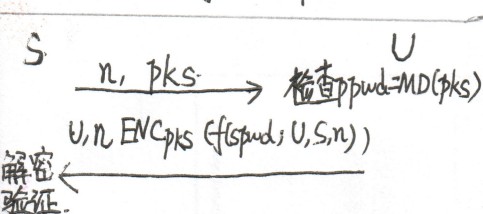 S U
n, pks 检查ppwd=MD(pks)
U,n ENCpks (f(spwd; U,S,n))
解密
验证.